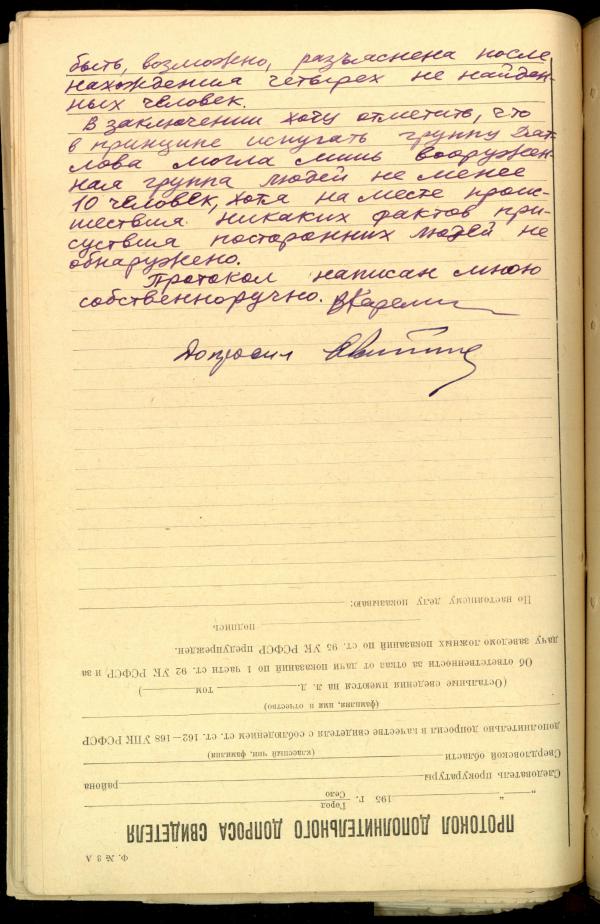 быть, возможно, разъяснена после
нахождения четырех не найден-
ных человек.
В заключении хочу отметить, что
в принципе испугать группу Дят-
лова могла лишь вооружен-
ная группа людей не менее
10 человек, хотя на месте проис-
шествия никаких фактов при-
суствия посторонних людей не
обнаружено.
Протокол написан мною
собственноручно. ВКарелин
Допросил
Ф. № 3 А
ПРОТОКОЛ ДОПОЛНИТЕЛЬНОГО ДОПРОСА СВИДЕТЕЛЯ
„ “ 195 г. Город
Село
Следователь прокуратуры района
Свердловской области
(классный чин, фамилия)
дополнительно допросил в качестве свидетеля с соблюдением ст. ст. 162—168 УПК РСФСР
(фамилия, имя и отчество)
(Остальные сведения имеются на л. д. том )
Об ответственности за отказ от дачи показаний по 1 части ст. 92 УК РСФСР и за
дачу заведомо ложных показаний по ст. 95 УК РСФСР предупрежден.
подпись
По настоящему делу показываю: